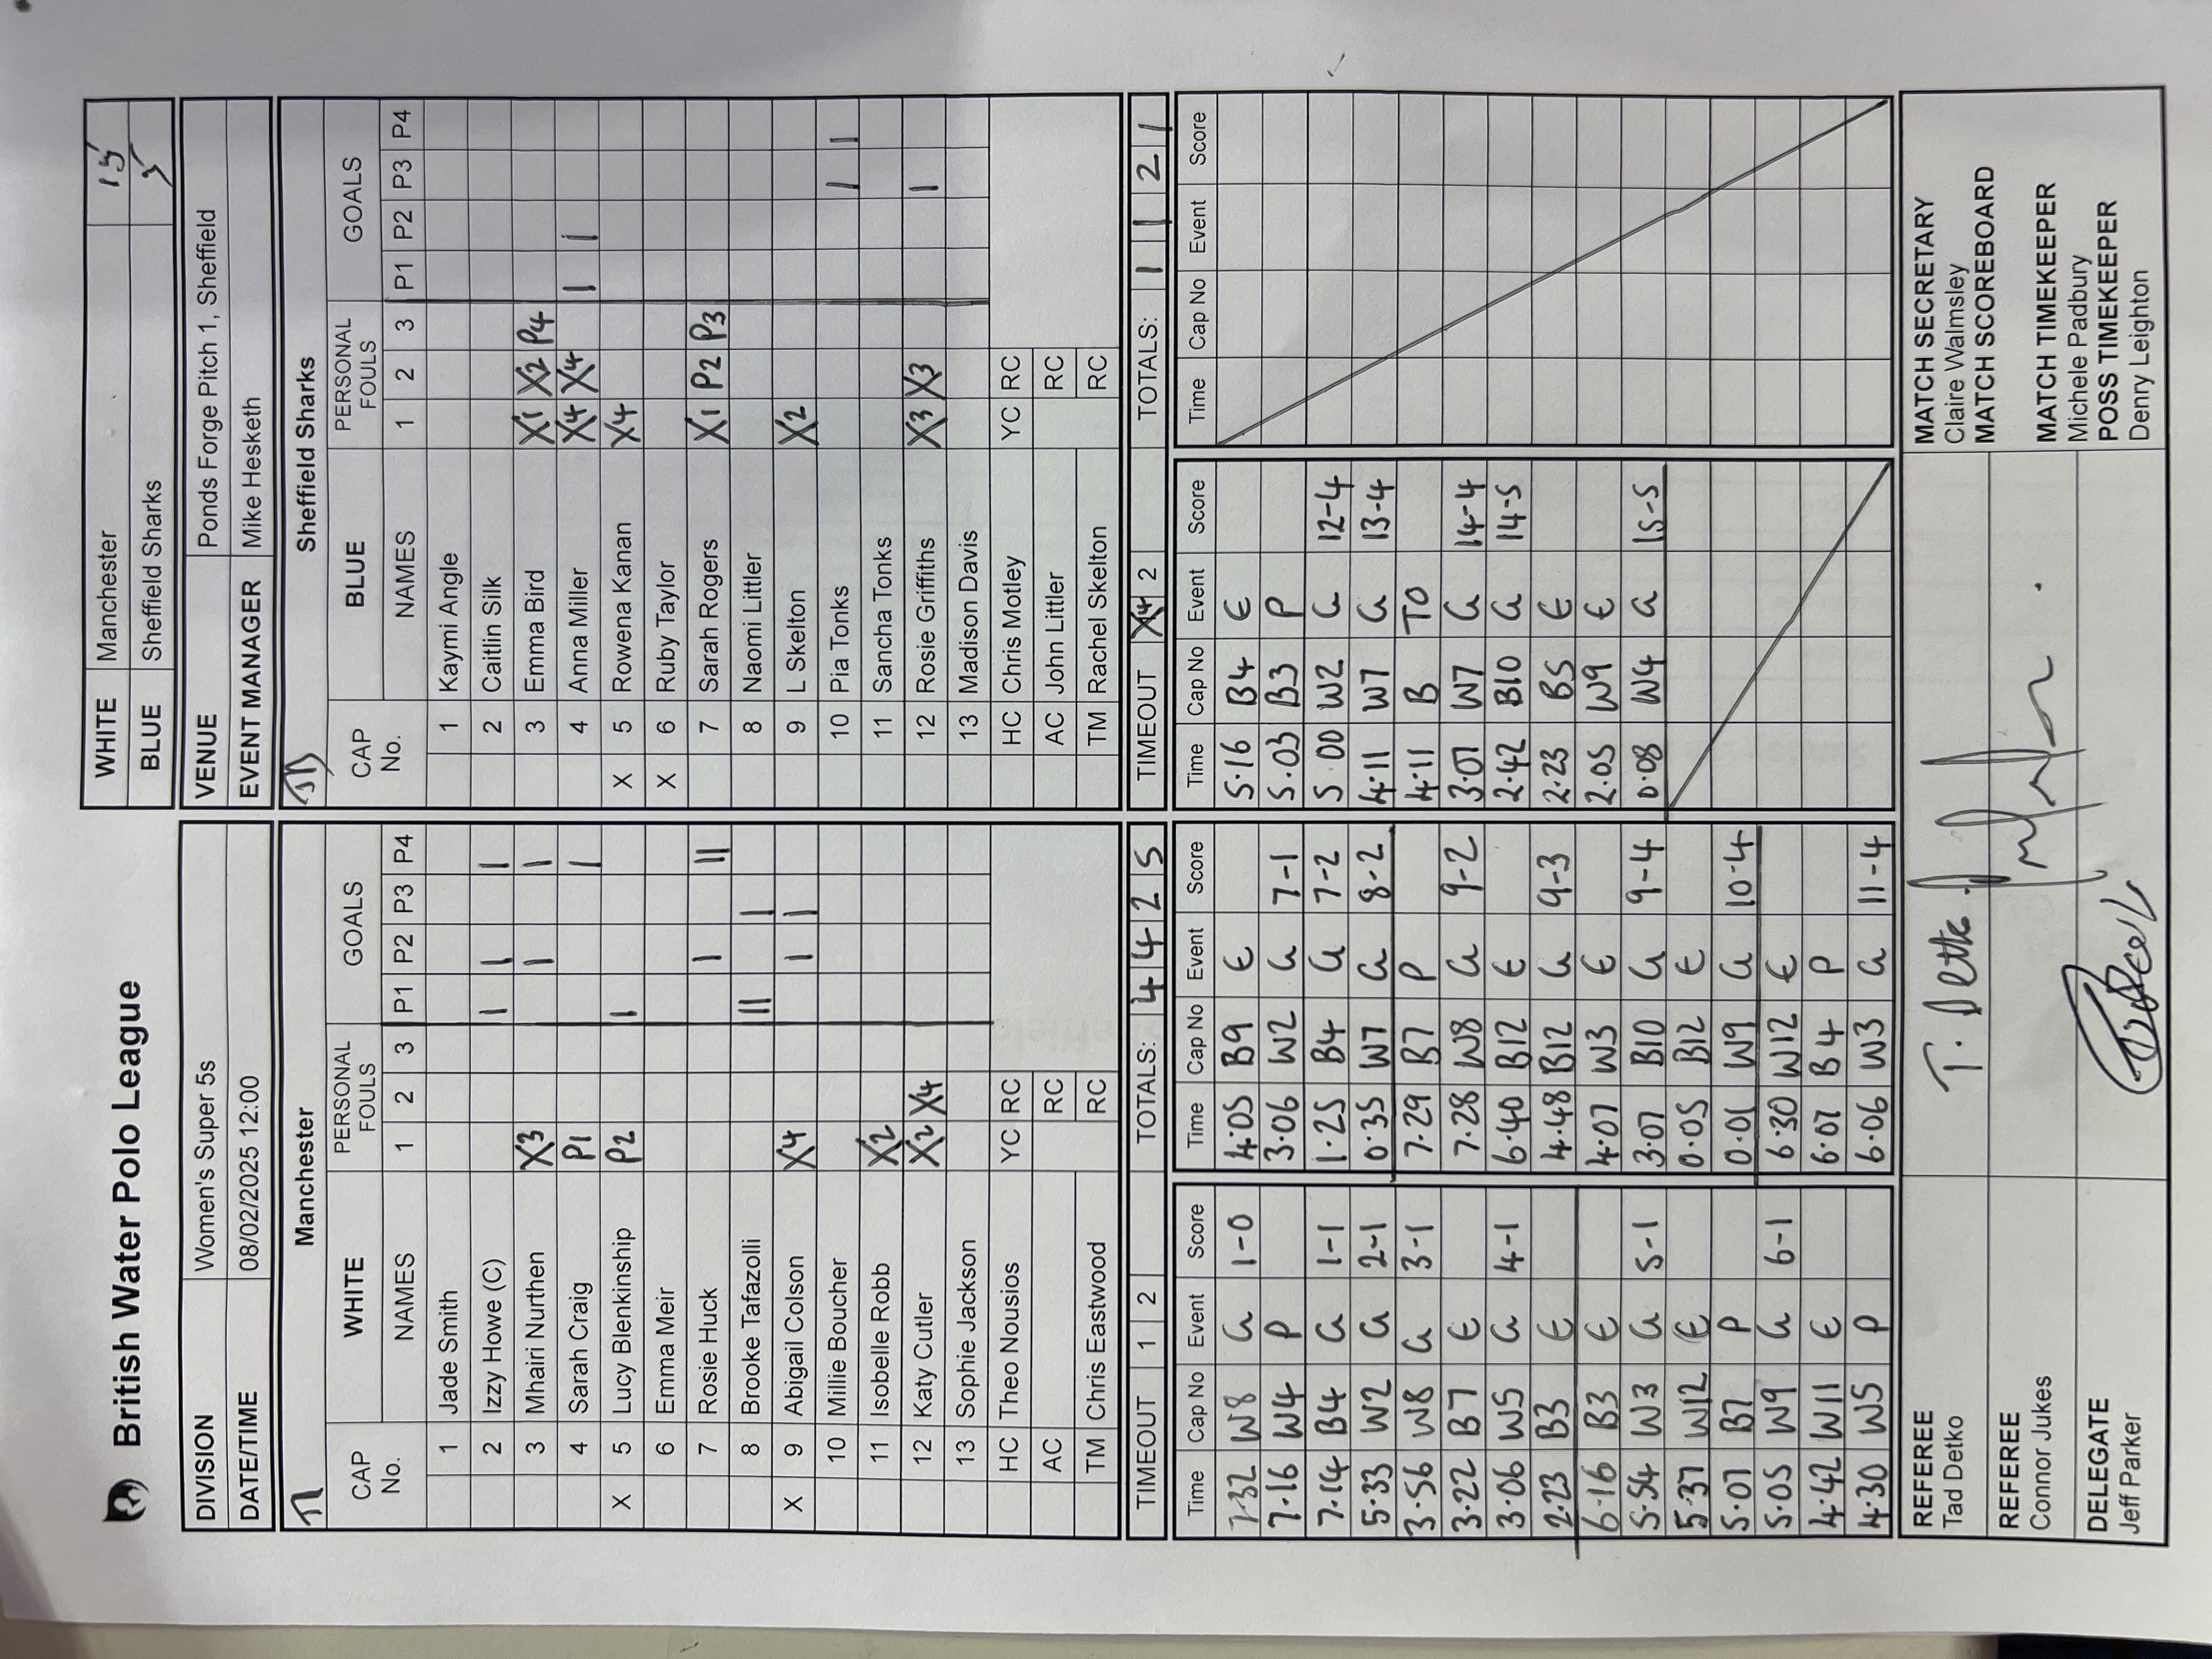 British Water Polo League
WHITE Manchester 15
BLUE Sheffield Sharks 5
DIVISION Women's Super 5s
DATE/TIME 08/02/2025 12:00
VENUE Ponds Forge Pitch 1, Sheffield
EVENT MANAGER Mike Hesketh
Manchester
CAP No. WHITE NAMES PERSONAL FOULS 1 2 3 GOALS P1 P2 P3 P4
1 Jade Smith
2 Izzy Howe (C) | | |
3 Mhairi Nurthen X3 | |
4 Sarah Craig P1 |
X 5 Lucy Blenkinship P2 |
6 Emma Meir
7 Rosie Huck | ||
8 Brooke Tafazolli || |
X 9 Abigail Colson X4 | |
10 Millie Boucher
11 Isobelle Robb X2
12 Katy Cutler X2 X4
13 Sophie Jackson
HC Theo Nousios YC RC
AC RC
TM Chris Eastwood RC
TIMEOUT 1 2 TOTALS: 4 4 2 5
Sheffield Sharks
CAP No. BLUE NAMES PERSONAL FOULS 1 2 3 GOALS P1 P2 P3 P4
1 Kaymi Angle
2 Caitlin Silk
3 Emma Bird X1 X2 P4
4 Anna Miller X4 X4 | |
X 5 Rowena Kanan X4
X 6 Ruby Taylor
7 Sarah Rogers X1 P2 P3
8 Naomi Littler
9 L Skelton X2
10 Pia Tonks | |
11 Sancha Tonks
12 Rosie Griffiths X3 X3 |
13 Madison Davis
HC Chris Motley YC RC
AC John Littler RC
TM Rachel Skelton RC
TIMEOUT X4 2 TOTALS: 1 1 2 1
Time Cap No Event Score
7.32 W8 G 1-0
7.16 W4 P
7.14 B4 G 1-1
5.33 W2 G 2-1
3.56 W8 G 3-1
3.22 B7 E
3.06 W5 G 4-1
2.23 B3 E
6.16 B3 E
5.54 W3 G 5-1
5.37 W12 E
5.07 B7 P
5.05 W9 G 6-1
4.42 W11 E
4.30 W5 P
Time Cap No Event Score
4.05 B9 E
3.06 W2 G 7-1
1.25 B4 G 7-2
0.35 W7 G 8-2
7.29 B7 P
7.28 W8 G 9-2
6.40 B12 E
4.48 B12 G 9-3
4.07 W3 E
3.07 B10 G 9-4
0.05 B12 E
0.01 W9 G 10-4
6.30 W12 E
6.07 B4 P
6.06 W3 G 11-4
Time Cap No Event Score
5.16 B4 E
5.03 B3 P
5.00 W2 G 12-4
4.11 W7 G 13-4
4.11 B TO
3.07 W7 G 14-4
2.42 B10 G 14-5
2.23 B5 E
2.05 W9 E
0.08 W4 G 15-5
Time Cap No Event Score
REFEREE
Tad Detko
T. Detko
REFEREE
Connor Jukes
DELEGATE
Jeff Parker
MATCH SECRETARY
Claire Walmsley
MATCH SCOREBOARD
MATCH TIMEKEEPER
Michele Padbury
POSS TIMEKEEPER
Denry Leighton